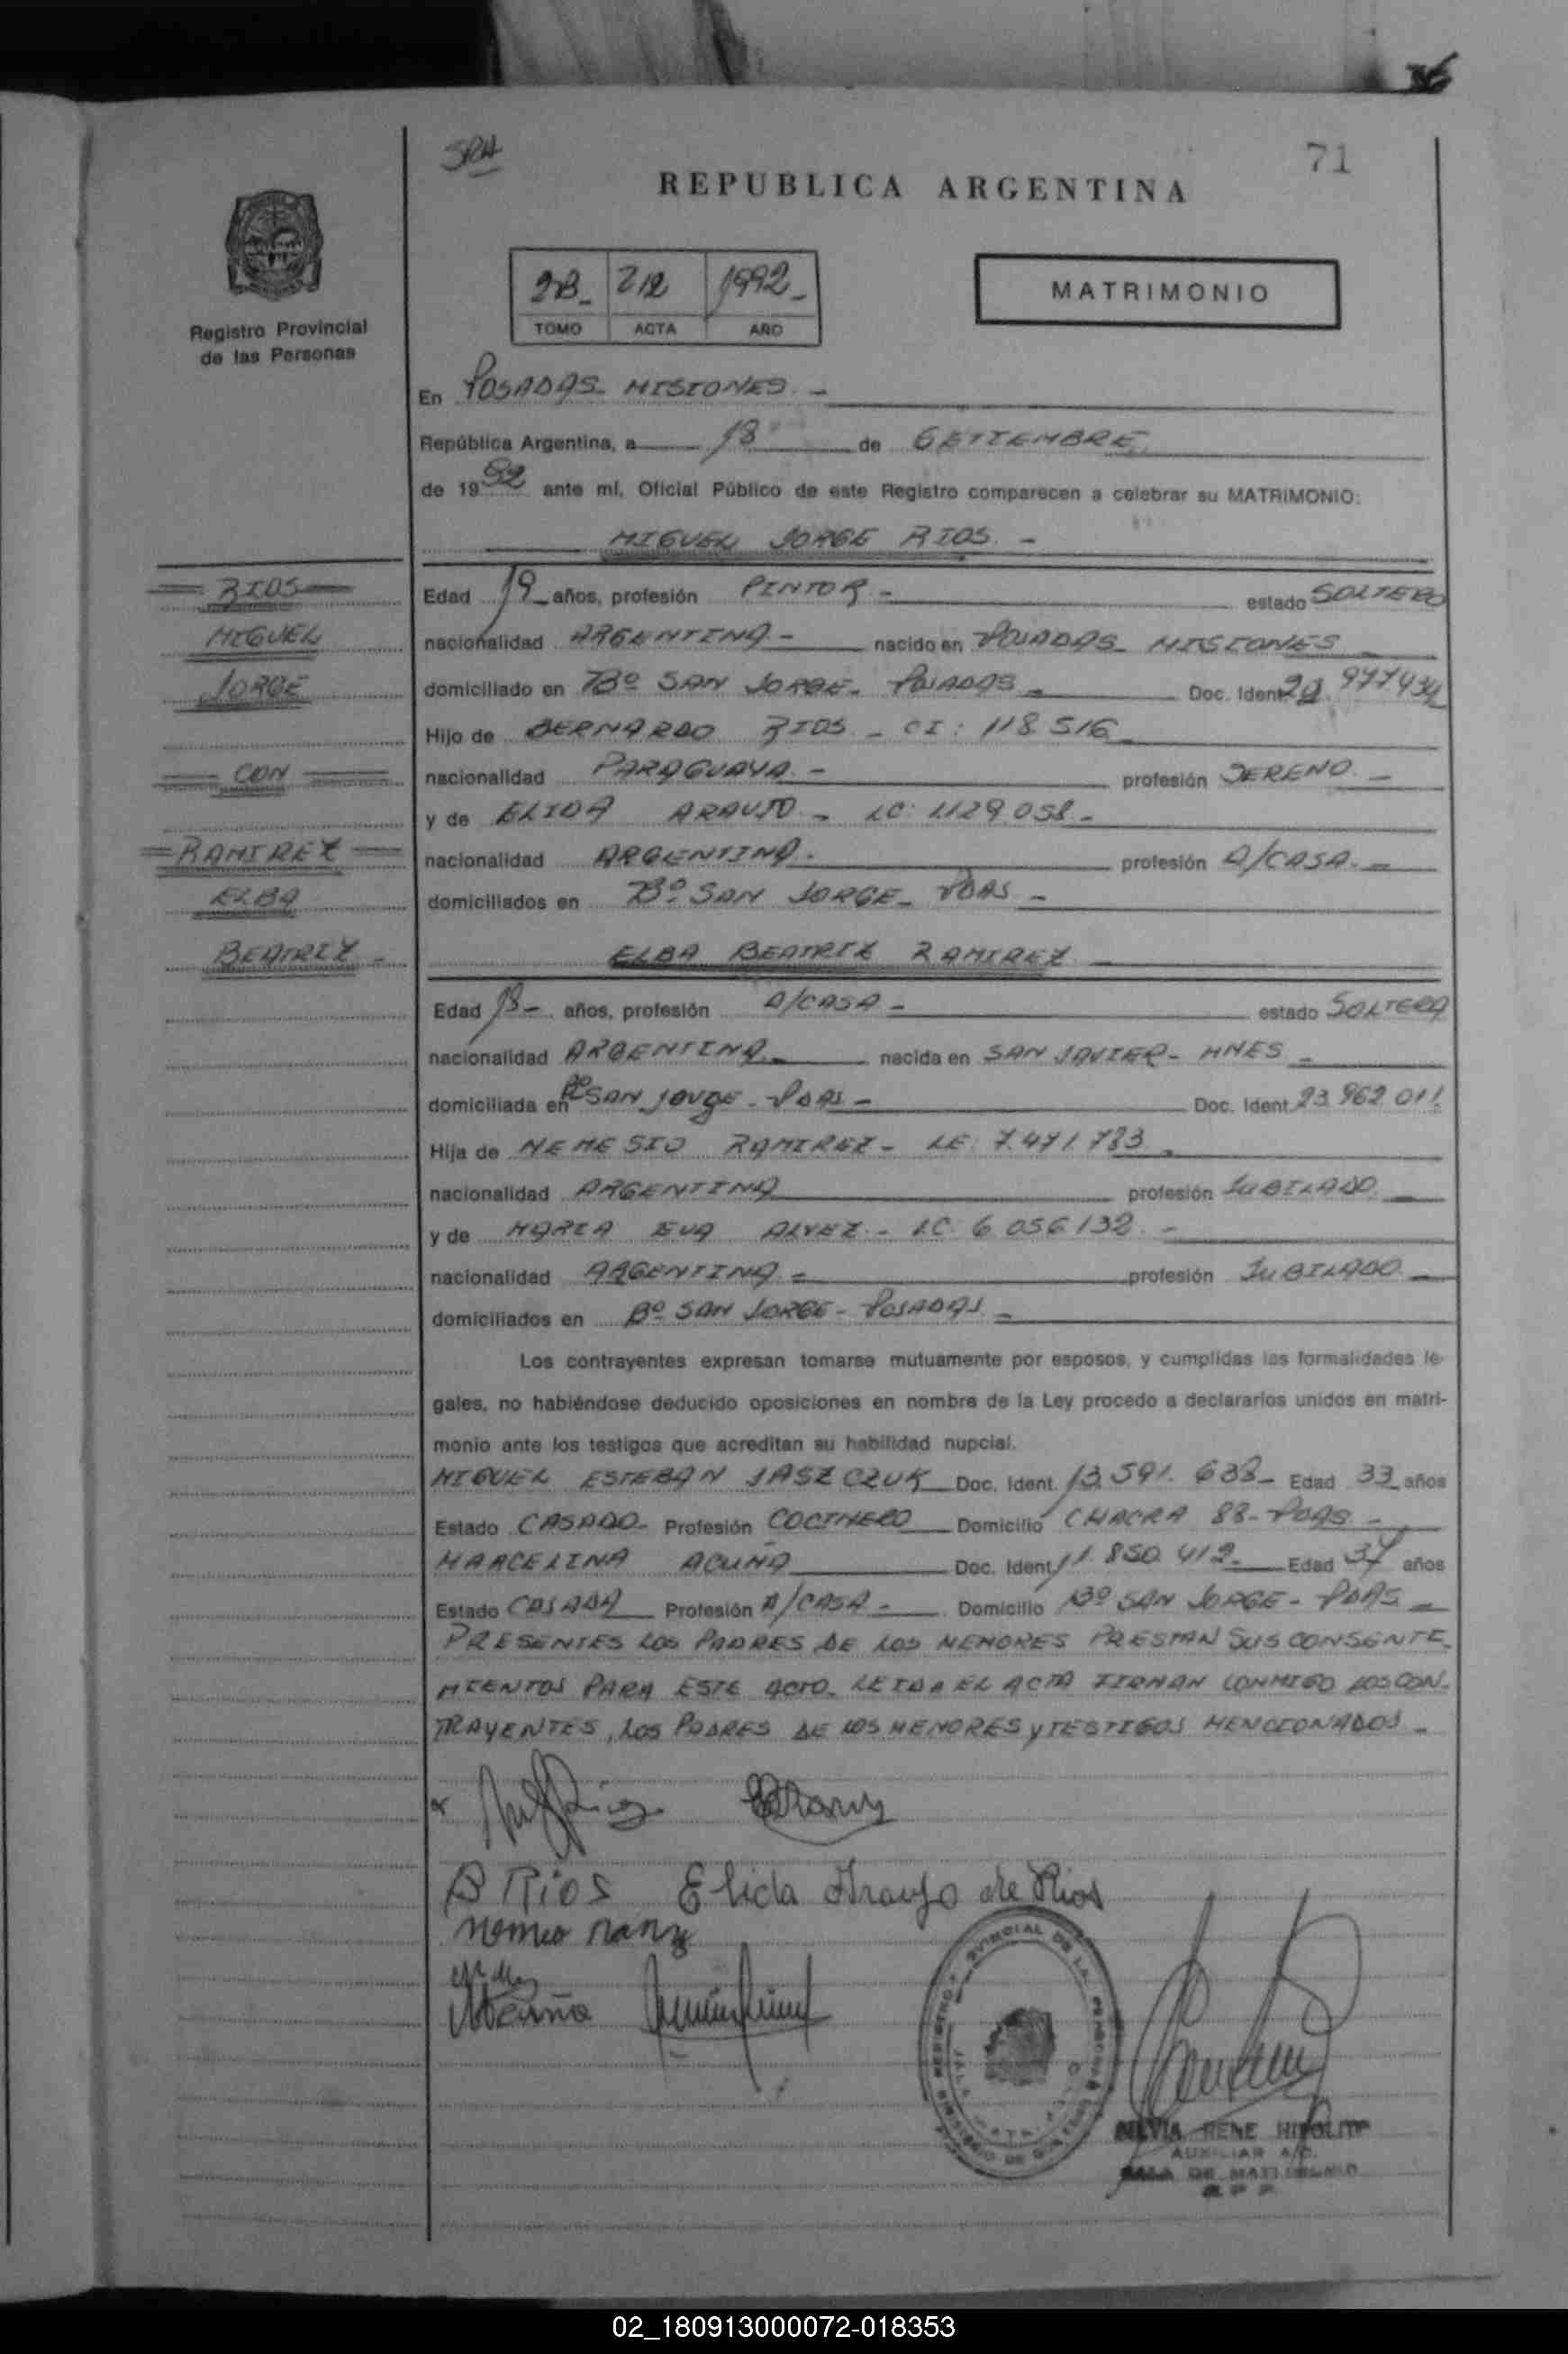 71
REPUBLICA ARGENTINA
Registro Provincial
de las Personas
2B - 212 1992 -
TOMO ACTA AÑO
MATRIMONIO
En POSADAS - MISIONES . -
República Argentina, a 18 de SETIEMBRE
de 1992 ante mí, Oficial Público de este Registro comparecen a celebrar su MATRIMONIO:
MIGUEL JORGE RIOS . -
RIOS
MIGUEL
JORGE
CON
RAMIREZ
ELBA
BEATRIZ -
Edad 19 años, profesión PINTOR - estado SOLTERO
nacionalidad ARGENTINA - nacido en POSADAS - MISIONES
domiciliado en Bº SAN JORGE - POSADAS - Doc. Ident. 977434
Hijo de BERNARDO RIOS - CI: 118.516
nacionalidad PARAGUAYA . - profesión SERENO . -
y de ELIDA ARAUJO - LC: 1.129.058 -
nacionalidad ARGENTINA . profesión A/CASA . -
domiciliados en Bº SAN JORGE - PDAS -
ELBA BEATRIZ RAMIREZ
Edad 18 - años, profesión A/CASA - estado SOLTERA
nacionalidad ARGENTINA - nacida en SAN JAVIER - MNES -
domiciliada en Bº SAN JORGE - PDAS - Doc. Ident. 23.962.011
Hija de NEMESIO RAMIREZ - LE: 7.471.783 -
nacionalidad ARGENTINA profesión JUBILADO . -
y de MARIA EVA ALVEZ - LC. 6 056 132 . -
nacionalidad ARGENTINA - profesión JUBILADO . -
domiciliados en Bº SAN JORGE - POSADAS -
Los contrayentes expresan tomarse mutuamente por esposos, y cumplidas las formalidades le-
gales, no habiéndose deducido oposiciones en nombre de la Ley procedo a declararlos unidos en matri-
monio ante los testigos que acreditan su habilidad nupcial.
MIGUEL ESTEBAN JASZCZUK Doc. Ident. 13.591.633 - Edad 33 años
Estado CASADO - Profesión COCINERO Domicilio CHACRA 88 - PDAS -
MARCELINA ACUÑA Doc. Ident. 11.850.412 - Edad 37 años
Estado CASADA Profesión A/CASA - Domicilio Bº SAN JORGE - PDAS -
PRESENTES LOS PADRES DE LOS MENORES PRESTAN SUS CONSENTI-
MIENTOS PARA ESTE ACTO. LEIDA EL ACTA FIRMAN CONMIGO LOS CON-
TRAYENTES, LOS PADRES DE LOS MENORES Y TESTIGOS MENCIONADOS -
B Rios Elida Araujo de Rios
MAcuña
SILVIA RENE HIPOLITO
AUXILIAR A/C.
SALA DE MATRIMONIO
02_180913000072-018353